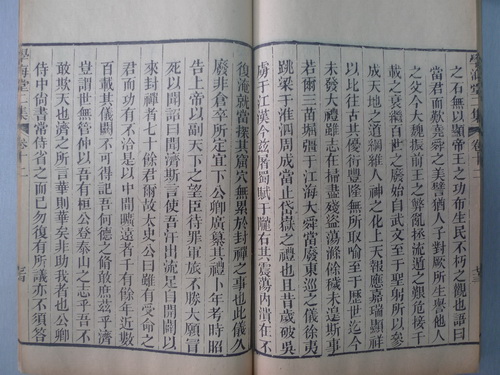 學海堂二集
卷十二
之石無以顯帝王之功布生民不朽之觀也語曰
當君而歎堯舜之美譬猶人子對厥所生譽他人
之父今大魏振前王之弊亂拯流遁之艱危接千
載之衰緒百世之廢始自武文至于聖躬所以參
成天地之道綱維人神之化上天報應嘉瑞顯祥
以比往古其優衍豐隆無所取喻至于歷世迄今
未發大禮雖志在掃盡殘盜蕩滌餘穢未遑斯事
若爾三苗堀强于江海大舜當廢東巡之儀徐夷
跳梁于淮泗周成當止岱嶽之禮也且昔歲破吳
虜于江漢今茲屠蜀賊于隴右其震蕩內潰在不
復淹就當探其窟穴無累於封禪之事也此儀久
廢非倉卒所定宜下公卿廣纂其禮卜年考時昭
告上帝以副天下之望臣待罪軍旅不勝大願冒
死以聞詔曰聞濟斯言使吾汗出流足自開闢以
來封禪者七十餘君爾故太史公曰雖有受命之
君而功有不洽是以中間曠遠者千有餘年近數
百載其儀闕不可得記吾何德之脩敢庶茲乎濟
豈謂世無管仲以吾有桓公登泰山之志乎吾不
敢欺天也濟之所言華則華矣非助我者也公卿
侍中尚書常侍省之而已勿復有所議亦不須答
學海堂二集
卷十二